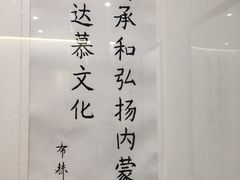 承和弘扬内蒙
达慕文化
布赫